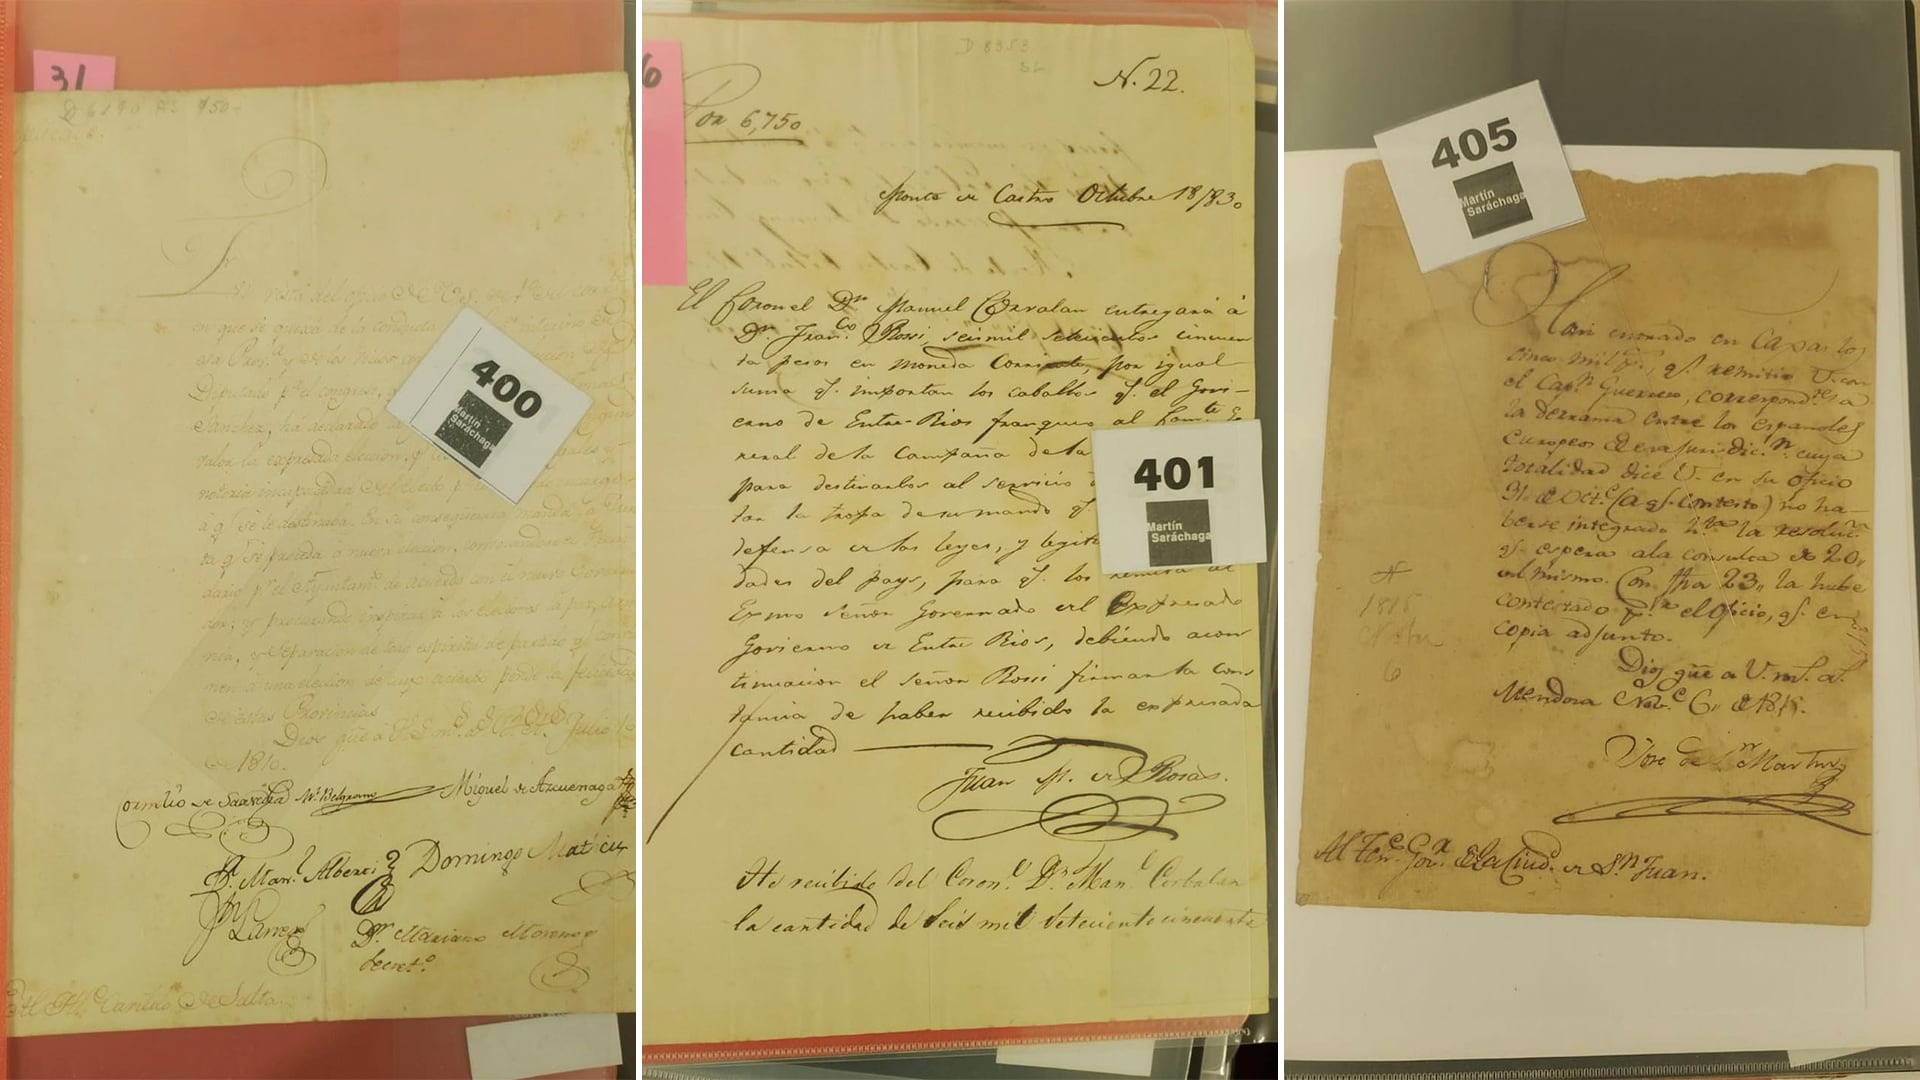 31
D 6190 AS 950-
En vista del oficio de V.S. de
en que se quexa de la conducta
esta Prov.a y de los
Diputado p.a el congreso,
Sanchez, ha declarado la
valor la expresada eleccion, y
notoria incapacidad del electo p.a
a q.e se le destinaba. En su consequencia manda la Jun
ta q.e se proceda à nueva eleccion,
dario p.r el Ayuntam.to de acuerdo con el nuevo Governa
dor, y procurando inspirar à los electores la paz,
nia, y separacion de todo espiritu de partido q.e
men à una eleccion de cuyo acierto pende la felicidad
de estas Provincias
Dios gũe à V.S. m.s a.s Julio
de 1810.
Cornelio de Saavedra M.l Belgrano Miguel de Azcuenaga
D.r Man.l Alberti Domingo Matheu
J. Larrea D.r Mariano Moreno
Secret.o
Al Il.e Cavildo de Salta.
400
Martín
Saráchaga
6
D 8353
N. 22.
Por 6,750
Monte de Castro Octubre 18/830
El Coronel D.n Manuel Corvalan entregará à
D.n Fran.co Rossi, seis mil setecientos cincuen
ta pesos en moneda corriente, por igual
suma q.e importan los caballos q.e el Govi-
erno de Entre-Rios franqueo al Com.te Ge
neral de la Campaña de la
para destinarlos al servicio
tar la tropa de su mando q.e
defensa de las leyes, y legiti
dades del pays, para q.e los remita al
Exmo Señor Governado del Expresado
Govierno de Entre Rios, debiendo acon
tinuacion el Señor Rossi firmar la cons
tancia de haber recibido la expresada
cantidad
Juan M. de Rosas.
He recibido del Coron.l D.n Man.l Corbalan
la cantidad de seis mil setecientos cincuenta
401
Martín
Saráchaga
405
Martín
Saráchaga
Han entrado en Caxas los
cinco mil p.s, q.e remitio V. con
el Cap.n Guerrero, correspond.tes a
la derrama entre los españoles
europeos de esa jurisdic.n cuya
totalidad dice V. en su oficio
31 de Oct.e (a q.e contesto) no ha-
berse integrado h.ta la resoluc.n
q.e espera a la consulta de 20,,
del mismo. Con fha 23,, la hube
contestado p.r el oficio, q.e en
copia adjunto.
Dios gũe a V. m.s a.s
Mendoza Nov.e 6,, de 1815.
1815
Nbre
6
Jose de S.n Martin
Al Ten.e Gov.r de la Ciud. de S.n Juan.